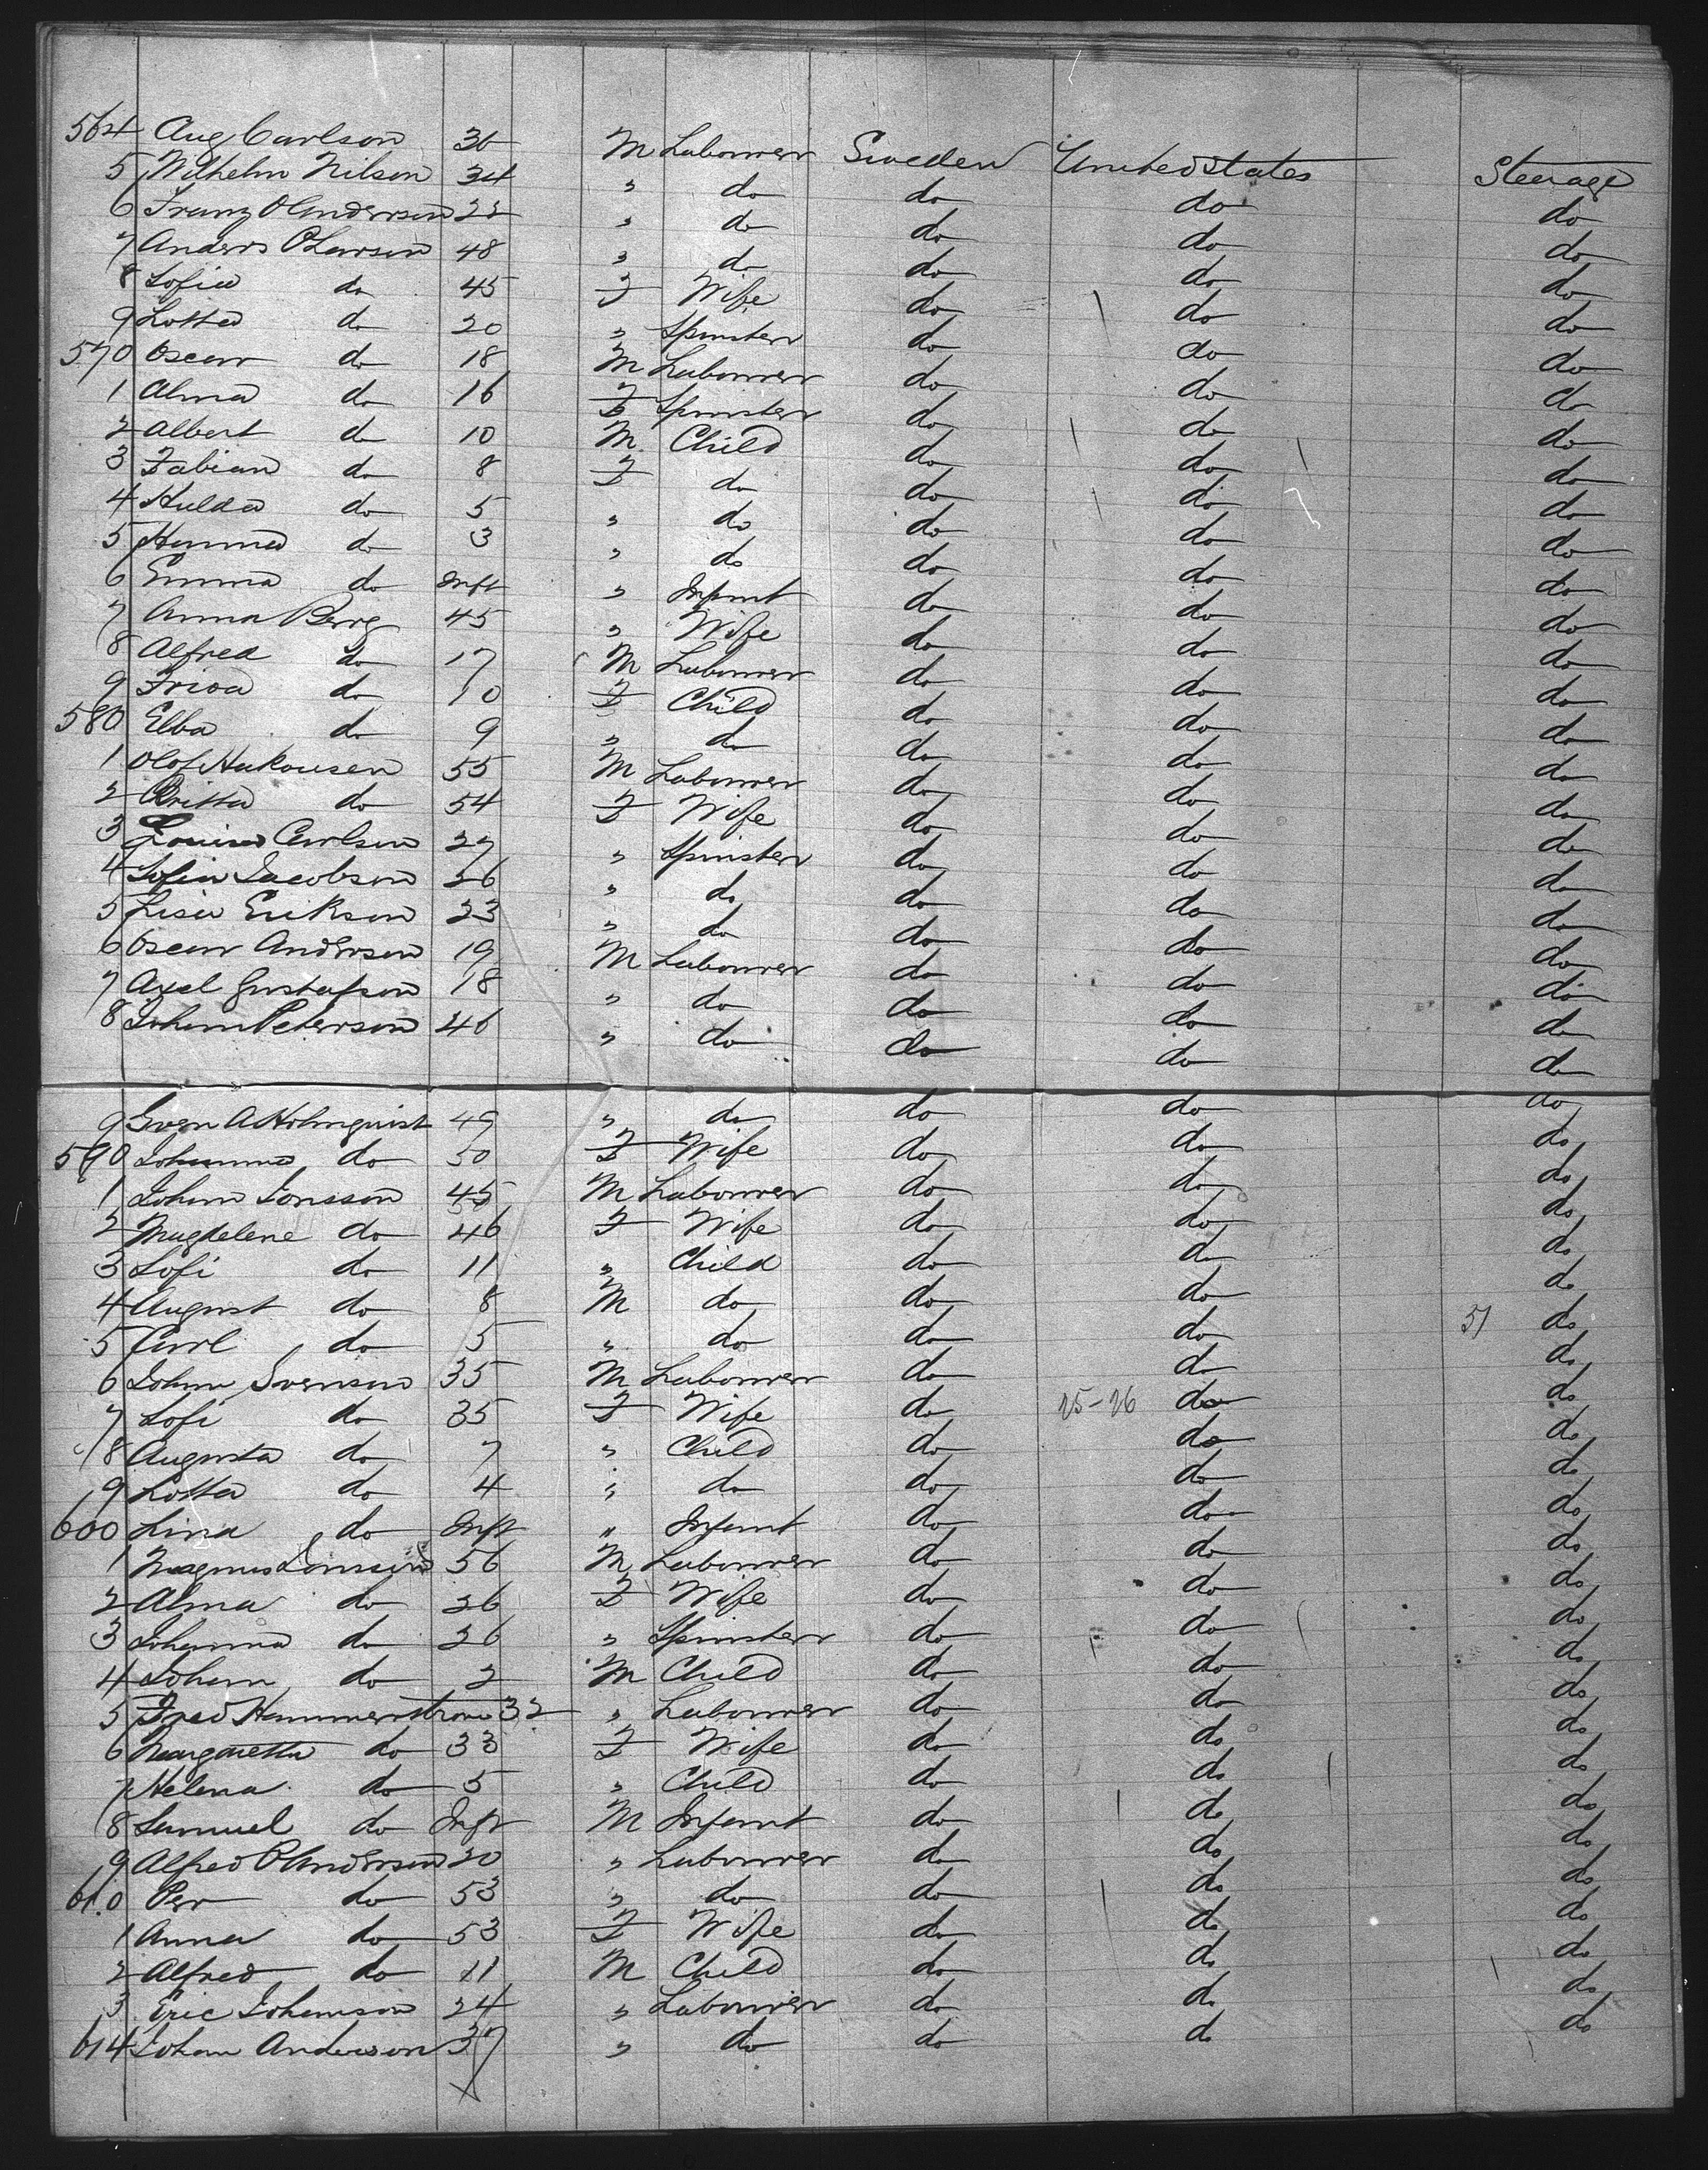 564 Aug Carlson 36 M Labourer Sweden United States Steerage
5 Wilhelm Nilson 34 " do do do do
6 Franz O Anderson 22 " do do do do
7 Anders O Larson 48 " do do do do
8 Sofia do 45 F Wife do do do
9 Lotta do 20 " Spinster do do do
570 Oscar do 18 M Labourer do do do
1 Alma do 16 F Spinster do do do
2 Albert do 10 M Child do do do
3 Fabian do 8 F do do do do
4 Hulda do 5 " do do do do
5 Hanna do 3 " do do do do
6 Emma do Inft " Infant do do do
7 Anna Berg 45 " Wife do do do
8 Alfred do 17 M Labourer do do do
9 Frida do 10 F Child do do do
580 Ebba do 9 " do do do do
1 Olof Hakansen 55 M Labourer do do do
2 Britta do 54 F Wife do do do
3 Louisa Carlson 27 " Spinster do do do
4 Sofia Jacobson 26 " do do do do
5 Lisa Erikson 23 " do do do do
6 Oscar Anderson 19 M Labourer do do do
7 Axel Gustafson 18 " do do do do
8 Johan Peterson 46 " do do do do
9 Sven A Holmquist 49 " do do do do
590 Johanna do 50 F Wife do do do
1 Johan Jonsson 45 M Labourer do do do
2 Magdelene do 46 F Wife do do do
3 Sofi do 11 " Child do do do
4 August do 8 M do do do do
5 Carl do 5 " do do do 51 do
6 Johan Svenson 35 M Labourer do do do
7 Sofi do 35 F Wife do 25-26 do do
8 Augusta do 7 " Child do do do
9 Lotta do 4 " do do do do
600 Lina do Inft " Infant do do do
1 Magnus Jonsson 56 M Labourer do do do
2 Alma do 26 F Wife do do do
3 Johanna do 26 " Spinster do do do
4 Johan do 2 M Child do do do
5 Fred Hammerstrom 32 " Labourer do do do
6 Margaretta do 33 F Wife do do do
7 Helena do 5 " Child do do do
8 Samuel do Inft M Infant do do do
9 Alfred P Anderson 20 " Labourer do do do
610 Per do 53 " do do do do
1 Anna do 53 F Wife do do do
2 Alfred do 11 M Child do do do
3 Eric Johanson 24 " Labourer do do do
614 Johan Anderson 37 " do do do do